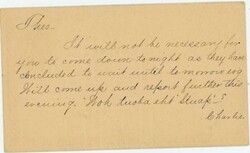 Theo.
It will not be necessary for
you to come down tonight as they have
concluded to wait until tomorrow evg
Will come up and report further this
evening. "Woh tuoba eht 'Stuap'-?
Charlie